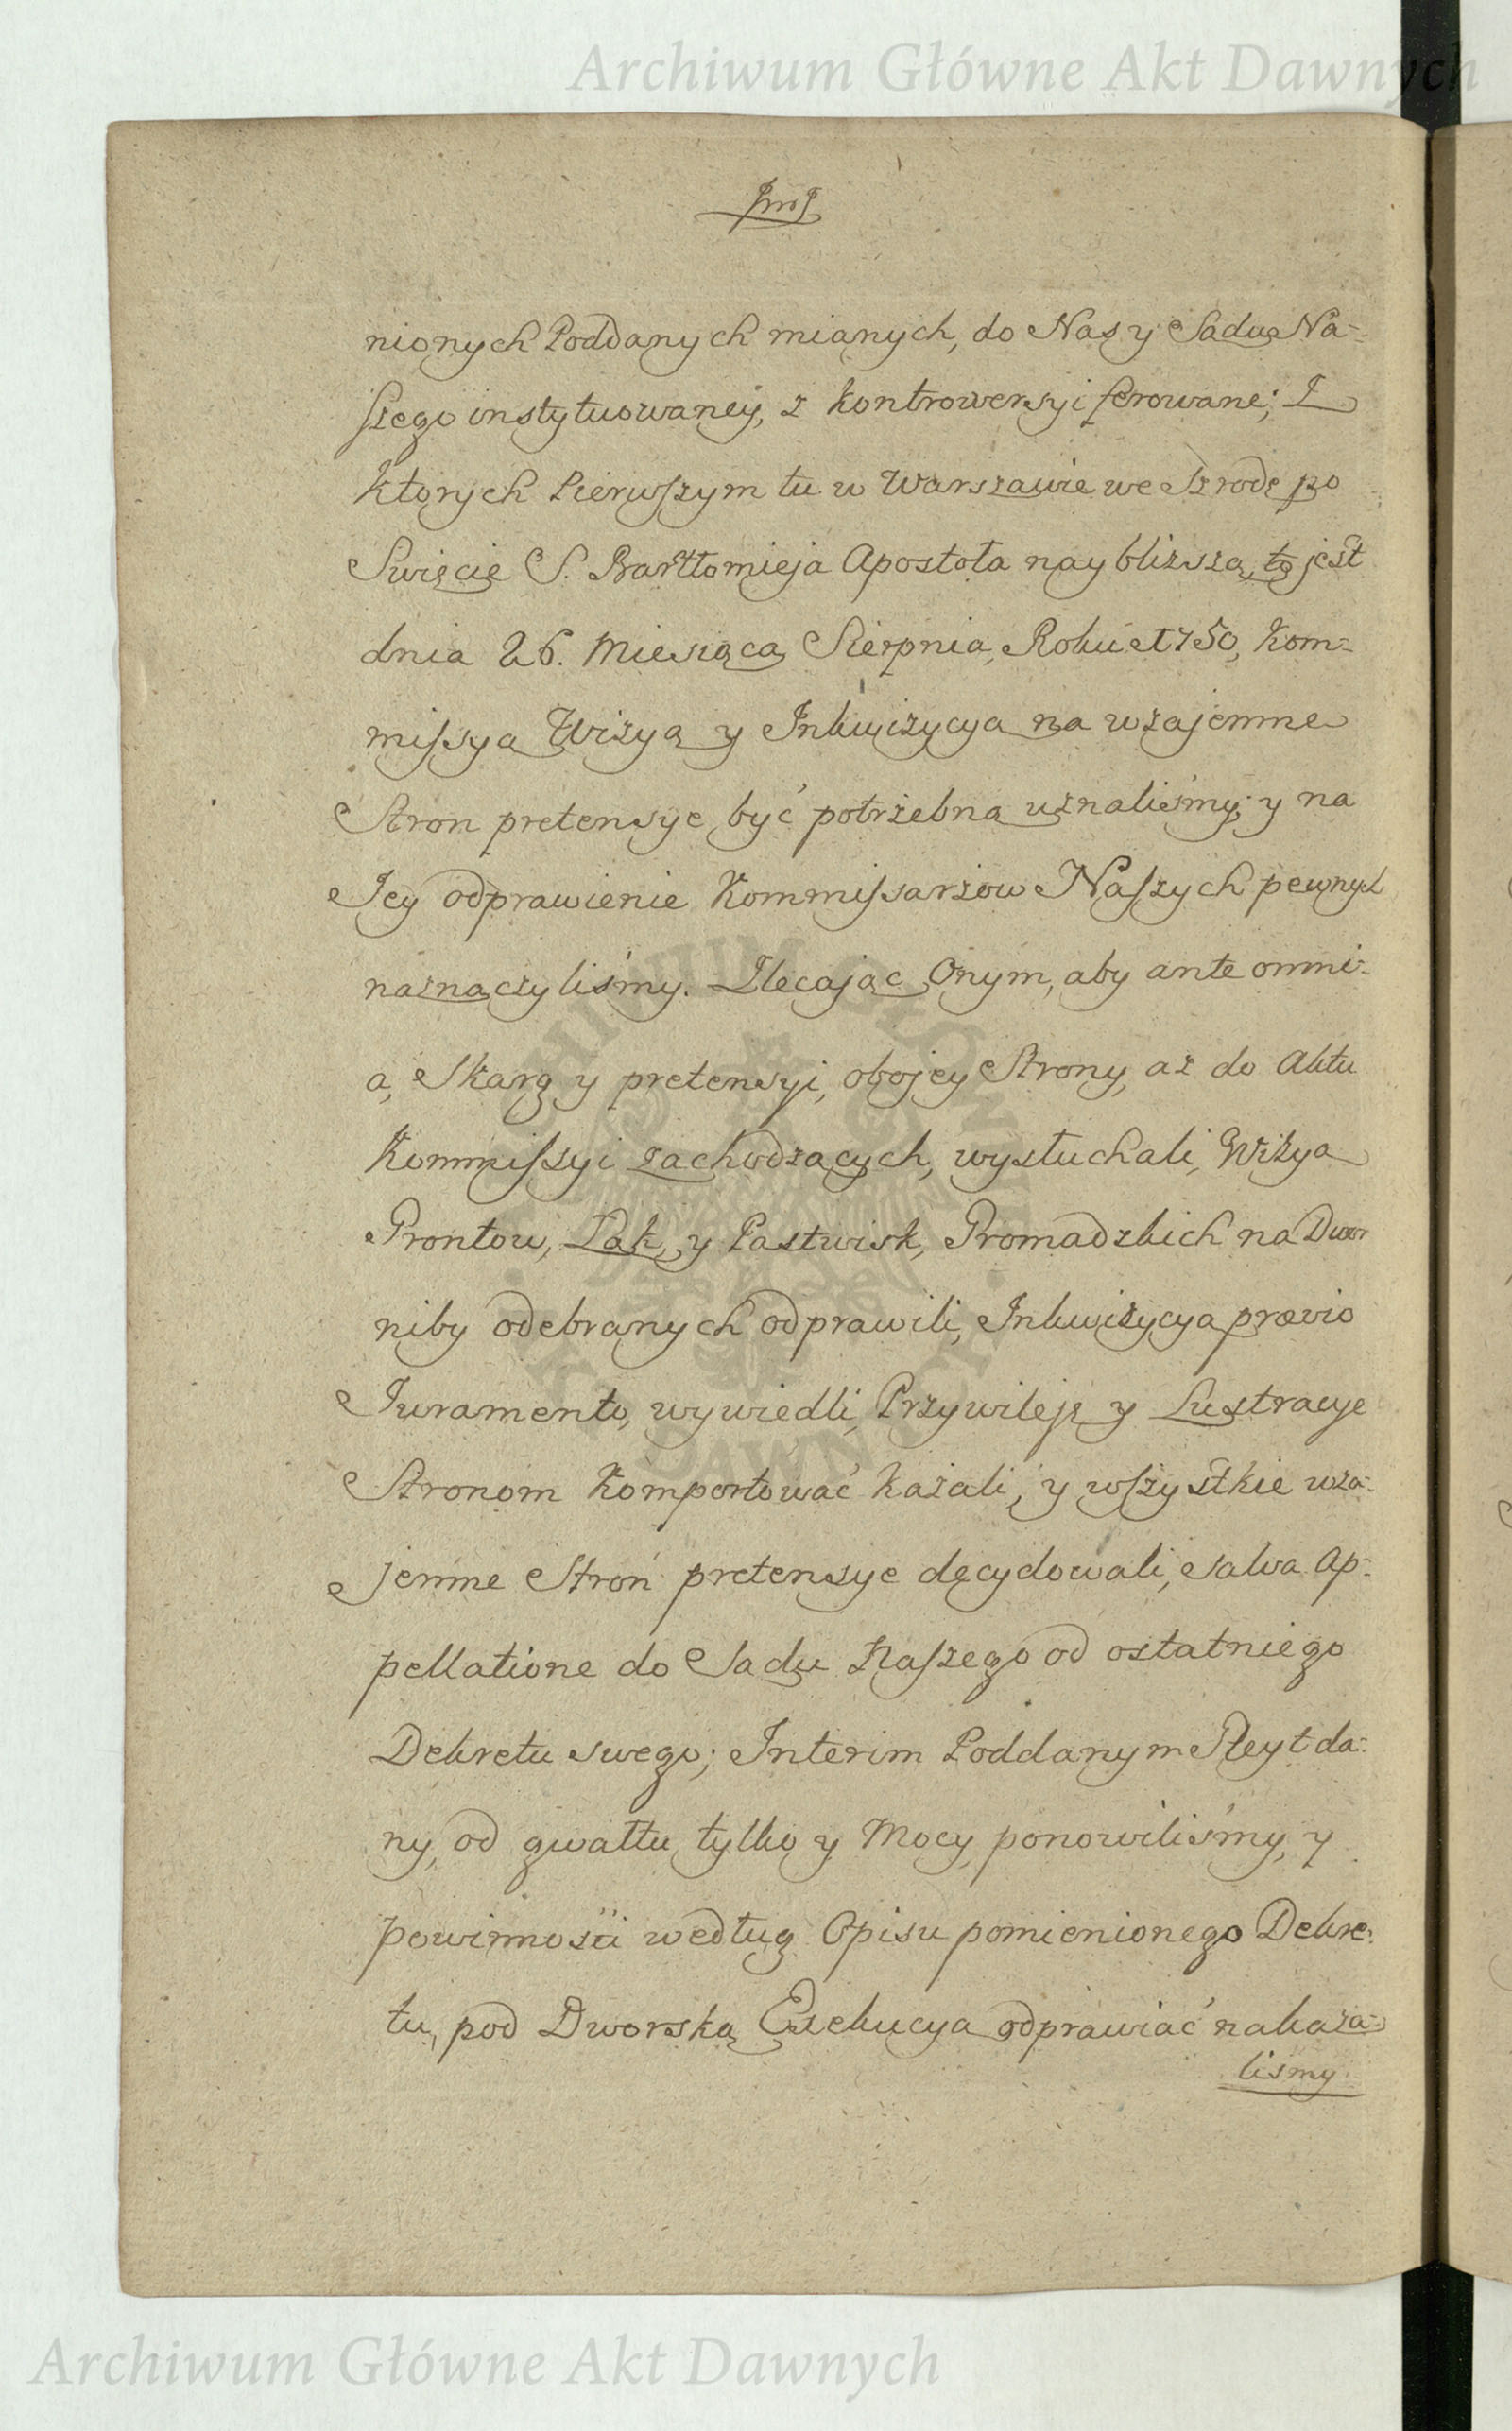 Archiwum Główne Akt Dawnych
nionych Poddanych mianych, do Nas y Sądu Na=
szego instytuowaney, z kontrowersyi ferowane; Z
ktorych Pierwszym tu w Warszawie we Szrodę po
Swięcie S. Bartłomieja Apostoła naybliższą, to jest
dnia 26. Miesiąca Sierpnia, Roku 1750, Kom=
missyą Wizyą y Inkwizycyą na wzajemne
Stron pretensye być potrzebną uznaliśmy, y na
Jey odprawienie Kommissarzow Naszych pewnych
naznaczyliśmy. Zlecając Onym, aby ante omni=
a, Skarg y pretensyi, obojey Strony, aż do Aktu
Kommissyi zachodzących, wysłuchali, Wizyą
Grontow, Łąk, y Pastwisk, Gromadzkich na Dwor
niby odebranych odprawili, Inkwizycyą prævio
Juramento, wywiedli, Przywileje y Lustracye
Stronom Komportować kazali, y wszystkie wza=
jemne Stron pretensye decydowali, salva Ap=
pellatione do Sądu Naszego od ostatniego
Dekretu swego; Interim Poddanym Gleyt da=
ny, od gwałtu tylko y Mocy, ponowiliśmy, y
powinności według Opisu pomienionego Dekre=
tu, pod Dworską Exekucyą odprawiać nakaza=
liśmy
Archiwum Główne Akt Dawnych